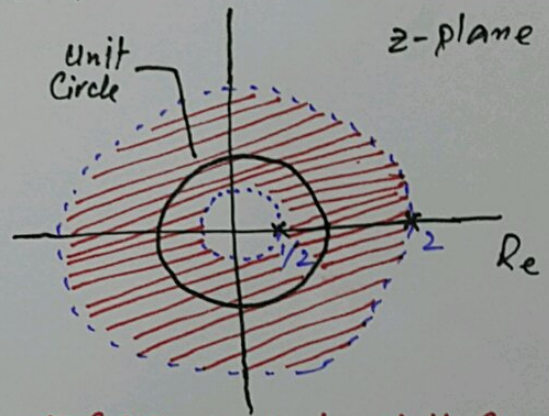 z-plane
Unit
Circle
1/2
2
Re